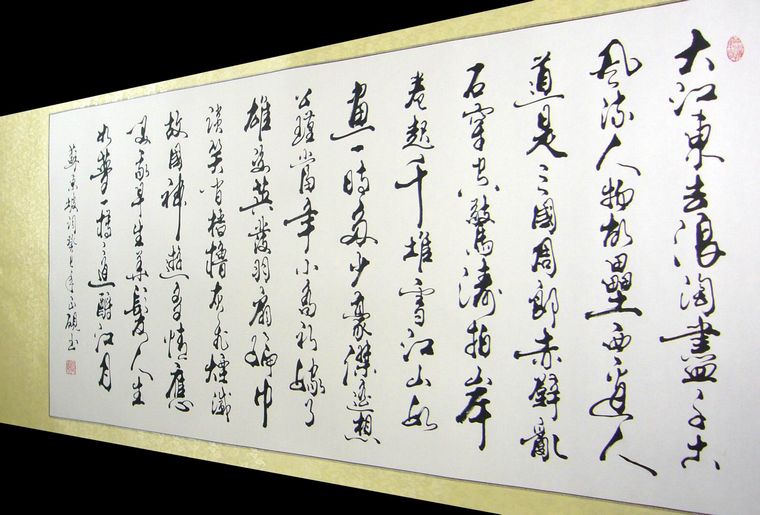 大江東去浪淘盡千古
風流人物故壘西邊人
道是三國周郎赤壁亂
石穿空驚濤拍岸
卷起千堆雪江山如
畫一時多少豪傑遙想
公瑾當年小喬初嫁了
雄姿英發羽扇綸巾
談笑間檣櫓灰飛煙滅
故國神遊多情應
笑我早生華髮人生
如夢一樽還酹江月
蘇東坡詞癸巳年碩書